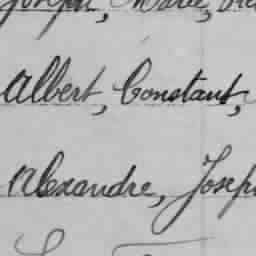 Joseph, Marie,
Albert, Constant,
Alexandre, Joseph